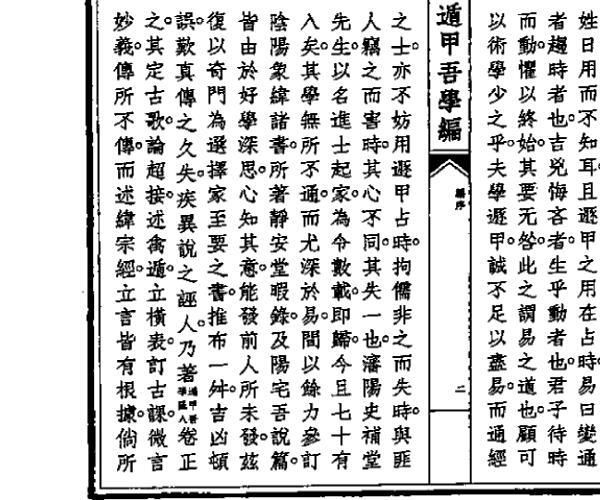 姓日用而不知耳且遯甲之用在占時易曰變通
者趨時者也吉兇悔吝者生乎動者也君子待時
而動懼以終始其要无咎此之謂易之道也顧可
以術學少之乎夫學遯甲誠不足以盡易而通經
遁甲吾學編
編序
二
之士亦不妨用遯甲占時拘儒非之而失時與匪
人竊之而害時其心不同其失一也瀋陽史補堂
先生以名進士起家為令數載即歸今且七十有
入矣其學無所不通而尤深於易間以餘力參訂
陰陽象緯諸書所著靜安堂暇錄及陽宅吾說篇
皆由於好學深思心知其意能發前人所未發茲
復以奇門為選擇家至要之書推布一舛吉凶頓
誤歎真傳之久失疾異說之誣人乃著遁甲吾學編八卷正
之其定古歌論超接述禽遁立橫表訂古課微言
妙義傳所不傳而述緯宗經立言皆有根據倘所